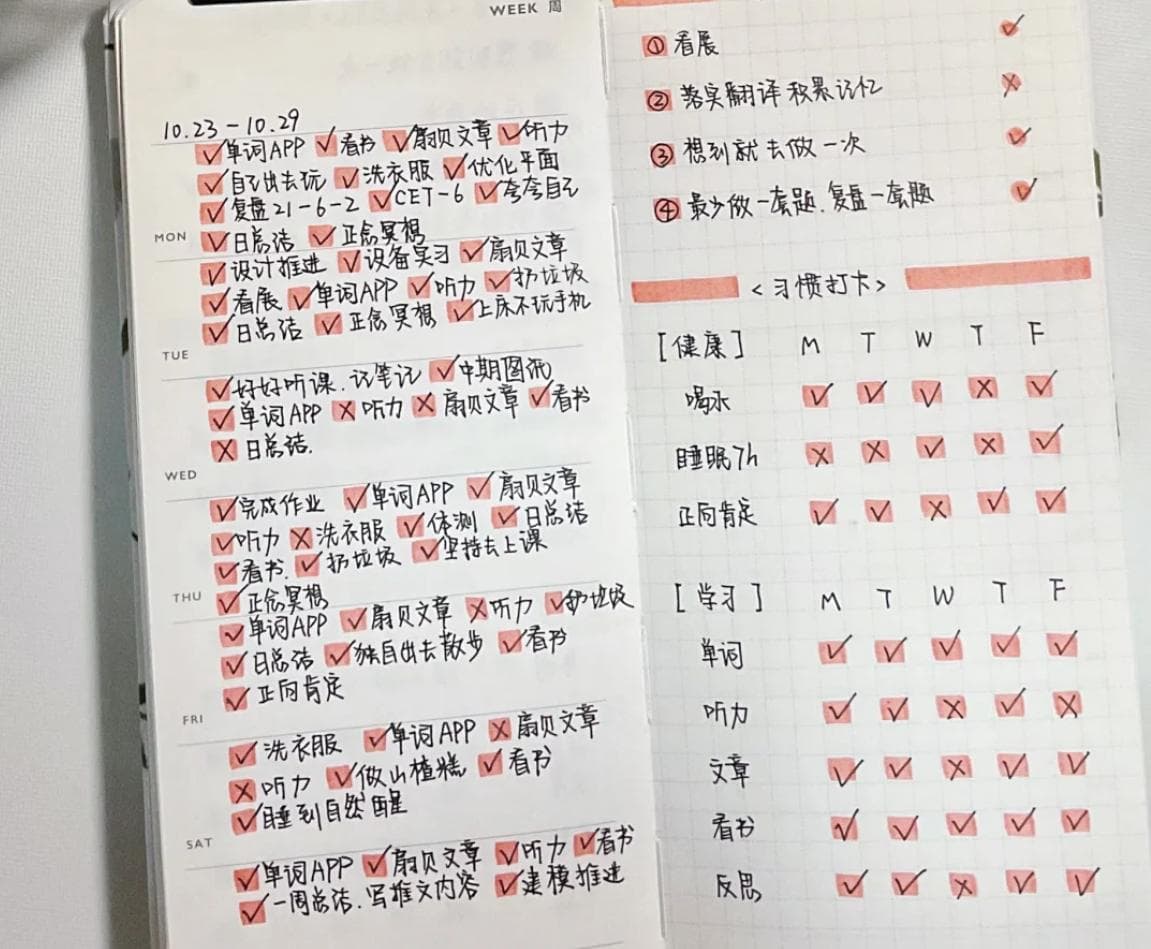 WEEK 周
10.23-10.29
✓单词APP ✓看书 ✓扇贝文章 ✓听力
✓自己出去玩 ✓洗衣服 ✓优化平面
✓复盘21-6-2 ✓CET-6 ✓夸夸自己
MON ✓日总结 ✓正念冥想
✓设计推进 ✓设备实习 ✓扇贝文章
✓看展 ✓单词APP ✓听力 ✓扔垃圾
✓日总结 ✓正念冥想 ✓上床不玩手机
TUE
✓好好听课.记笔记 ✓中期图纸
✓单词APP ×听力 ×扇贝文章 ✓看书
×日总结.
WED
✓完成作业 ✓单词APP ✓扇贝文章
✓听力 ×洗衣服 ✓体测 ✓日总结
✓看书. ✓扔垃圾 ✓坚持去上课
THU ✓正念冥想
✓单词APP ✓扇贝文章 ×听力 ✓扔垃圾
✓日总结 ✓独自出去散步 ✓看书
✓正向肯定
FRI
✓洗衣服 ✓单词APP ×扇贝文章
×听力 ✓做山楂糕 ✓看书
✓睡到自然醒
SAT
✓单词APP ✓扇贝文章 ✓听力 ✓看书
✓一周总结.写推文内容 ✓建模推进
①看展 ✓
②落实翻译积累记忆 ×
③想到就去做一次 ✓
④最少做一套题.复盘一套题 ✓
<习惯打卡>
[健康] M T W T F
喝水 ✓ ✓ ✓ × ✓
睡眠7h × × ✓ × ✓
正向肯定 ✓ ✓ × ✓ ✓
[学习] M T W T F
单词 ✓ ✓ ✓ ✓ ✓
听力 ✓ ✓ × ✓ ×
文章 ✓ ✓ × ✓ ✓
看书 ✓ ✓ ✓ ✓ ✓
反思 ✓ ✓ × ✓ ✓